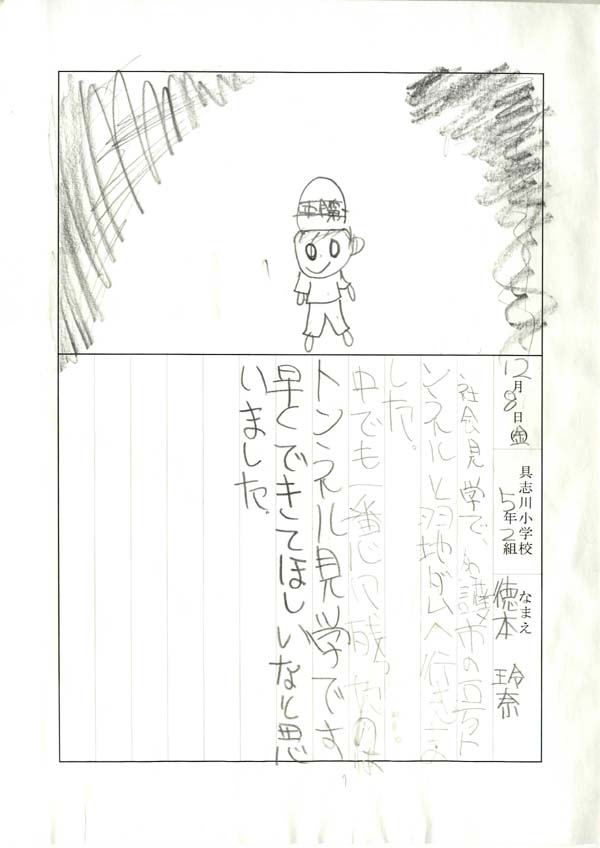 12月8日㊎
具志川小学校
5年2組
なまえ 徳本 玲奈
社会見学で、名護市のト
ンネルと羽地ダムへ行きま
した。
中でも一番心に残ったのは
トンネル見学です
早くできてほしいなと思
いました。